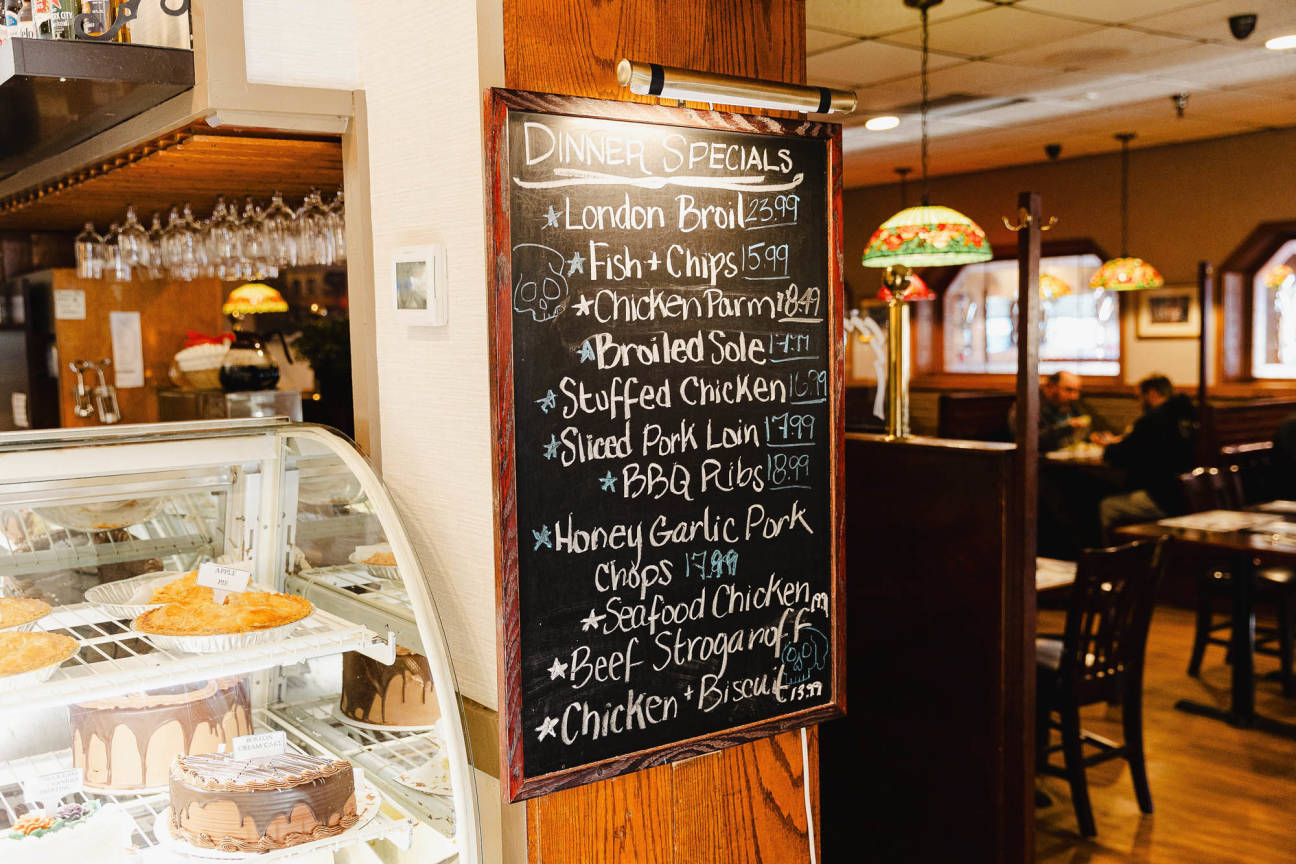 DINNER SPECIALS
London Broil 23.99
Fish + Chips 15.99
Chicken Parm 18.49
Broiled Sole
Stuffed Chicken 16.99
Sliced Pork Loin 17.99
BBQ Ribs 18.99
Honey Garlic Pork
Chops 17.99
Seafood Chicken
Beef Stroganoff
Chicken + Biscuit 13.99
APPLE
PIE
BOSTON
CREAM CAKE